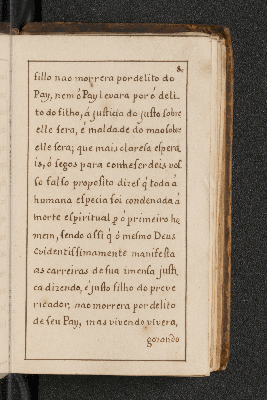 8.
filho nao morrera por delito do
Pay, nem ó Pay levara por ó deli-
to do filho, á justicia do justo sobre
elle sera, é maldade do mao sobre
elle sera; que mais claresa espera
is, ó segos para conheserdeis vos
so falso proposito dizes q̃ toda á
humana especia foi condenada á
morte espiritual p ó primeiro ho
mem, sendo assi q̃ ó mesmo Deus
evidentissimamente manifesta
as carreiras de sua imensa justi
ca dizendo, é justo filho do preve
ricador, nao morrera por delito
de seu Pay, mas vivendo vivera,
gosando